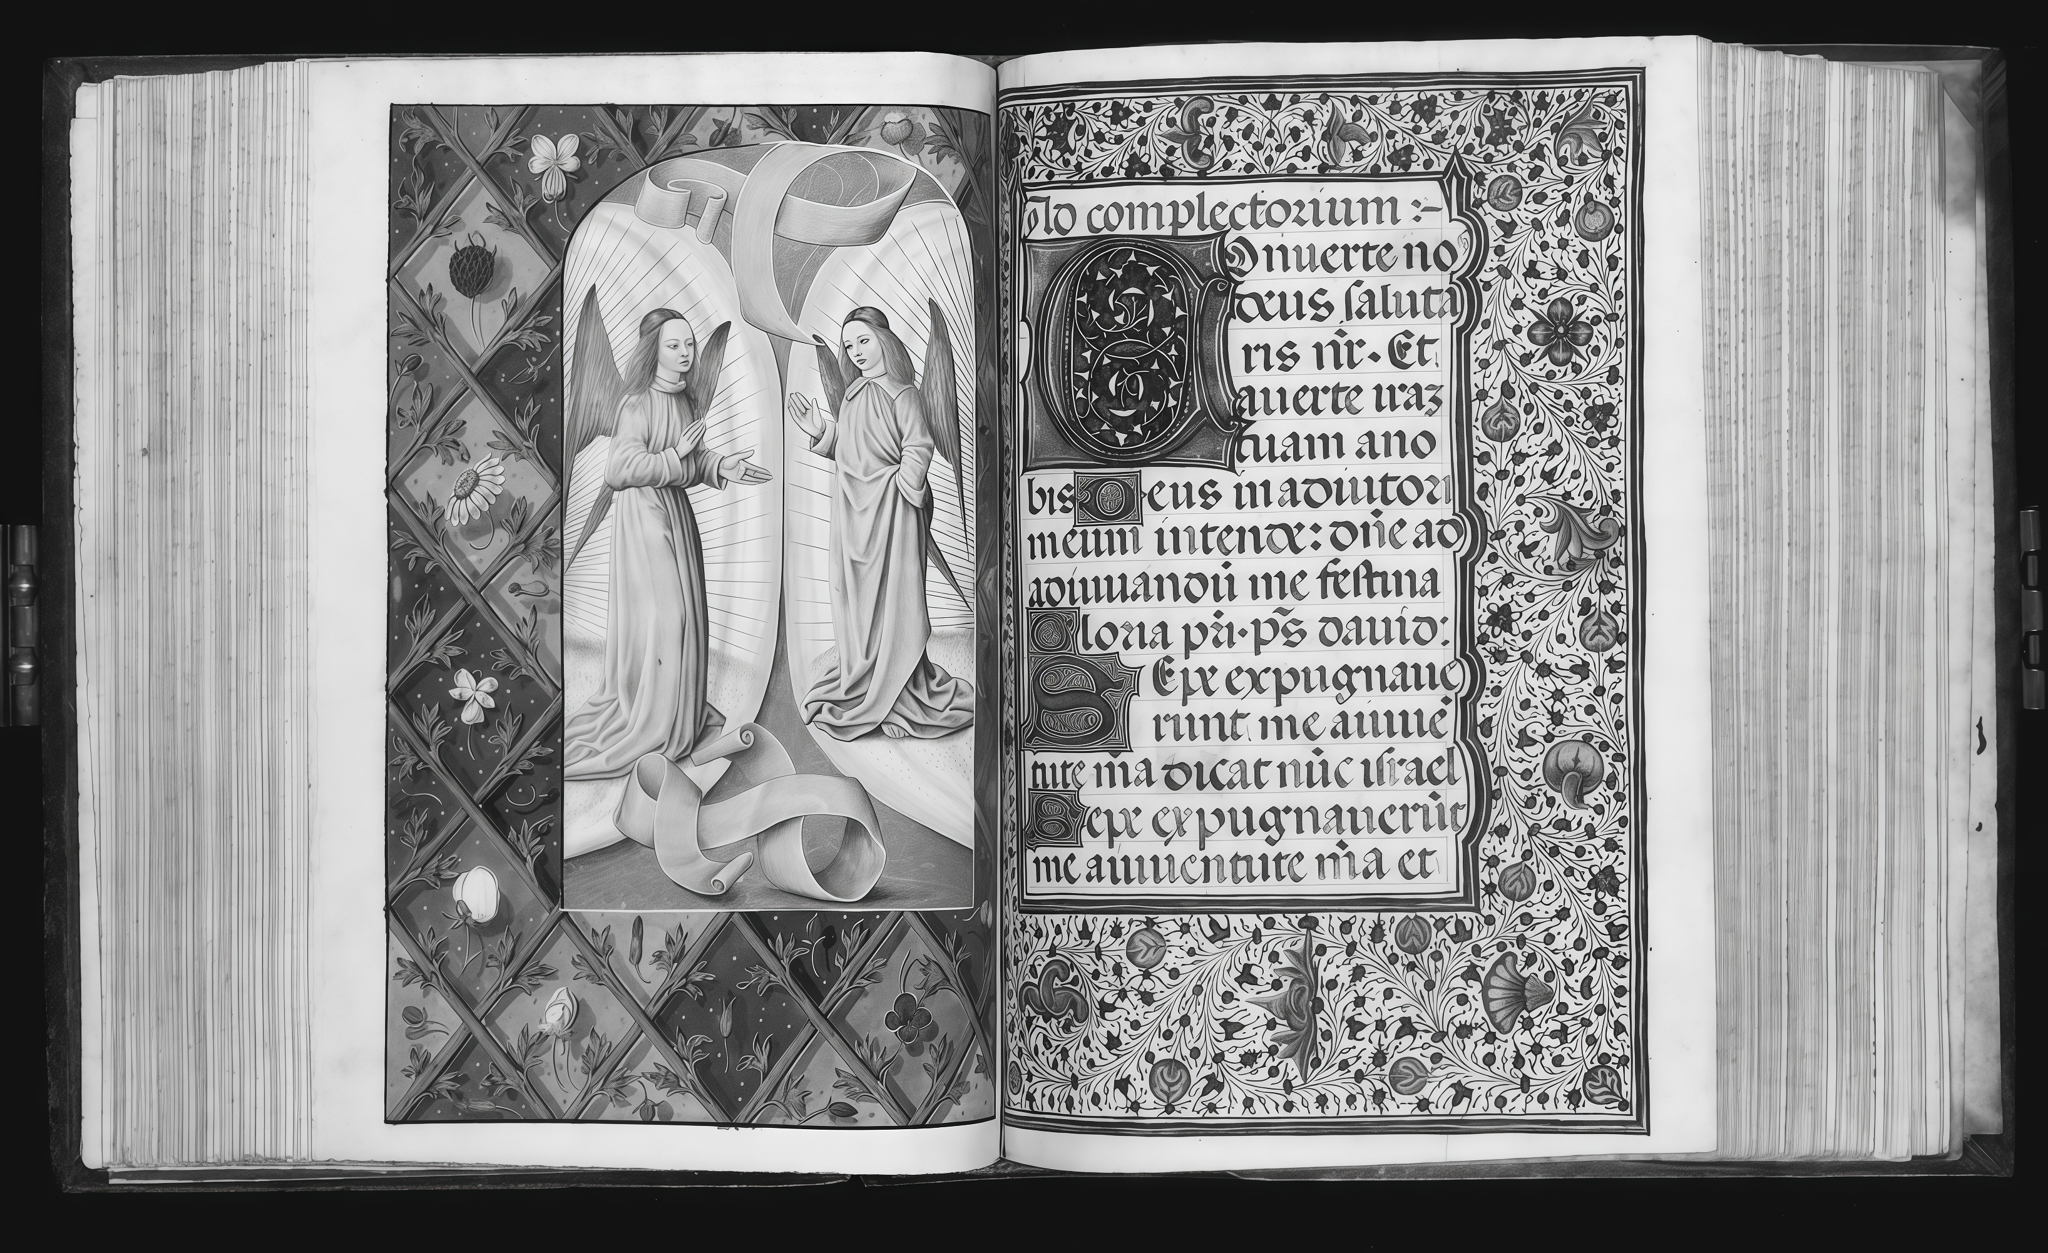 Ad complectorium :~
Conuerte no
deus saluta
ris nr̃. Et
auerte iraz
tuam ano
bis Deus in adiutori
meum intende: dñe ad
adiuuandū me festina
Gloria pr̃i. ps̃ dauid:
Sepe expugnaue
runt me a iuuē
tute m̃a dicat nūc israel
Sepe expugnauerūt
me a iuuentute m̃a et